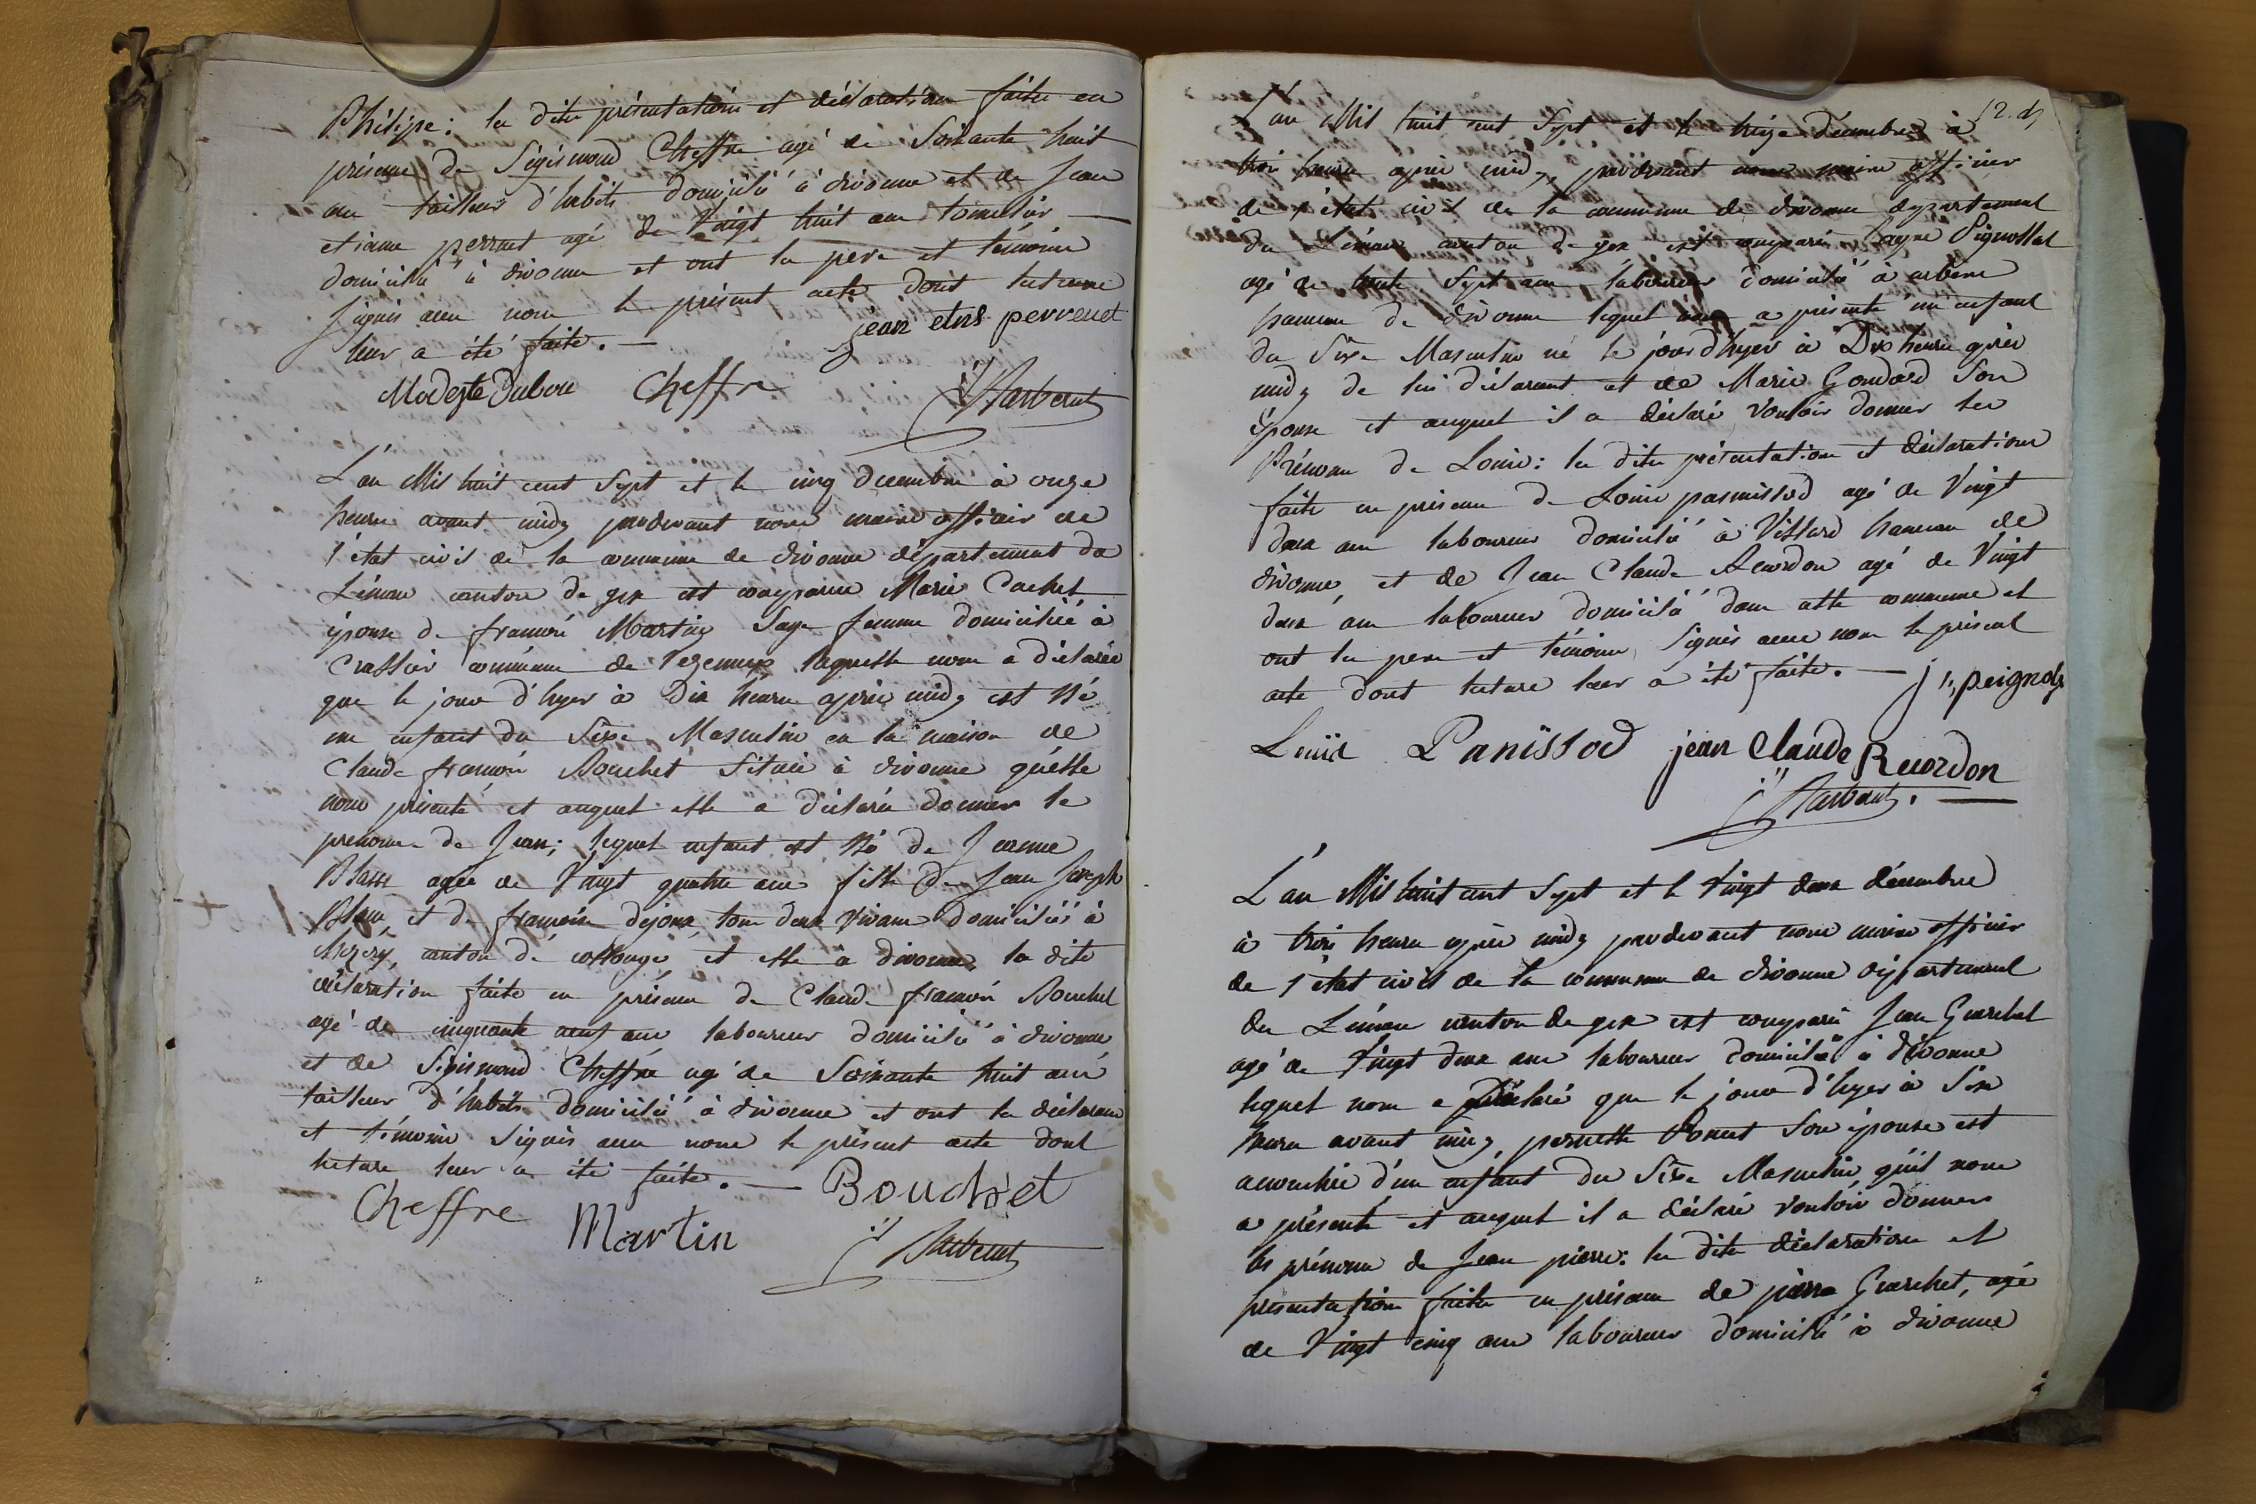 Philipe: les dites présentation et déclaration faites en
présence de Sigismond Cheffre agé de Soixante huit
ans tailleur d'habits domicilié à divonne et de Jean
etienne perrout agé de Vingt huit ans tonnelier
domicilié à divonne et ont les pere et témoins
signés avec nous le présent acte dont lecture
leur a été faite. —
jean etns perreuet
Modeste Dubou Cheffre
L'an Mil huit cent Sept et le cinq decembre à onze
heures avant midy pardevant nous maire officier de
l'état civil de la commune de divonne département du
Léman canton de gex est comparue Marie Cachet
épouse de françois Martin Sage femme domiciliée à
Crassier commune de Vezenex laquelle nous a déclarée
que le jour d'hyer à Dix heures après midy est Né
un enfant du Sexe Masculin en la maison de
Claude françois Bouchet Située à divonne qu'elle
nous présente et auquel elle a déclarée donner le
prenom de Jean; lequel enfant est Né de Jeanne
Blanc agée de Vingt quatre ans fille de Jean Joseph
Blanc et de françoise dejoux tous deux vivans domiciliés à
chezery, canton de collonge et elle à divonne, la dite
déclaration faite en présence de Claude françois Bouchet
agé de cinquante neuf ans laboureur domicilié à divonne
et de Sigismond Cheffre agé de Soixante huit ans
tailleur d'habits domicilié à divonne et ont les déclarans
et témoins Signés avec nous le présent acte dont
lecture leur a été faite. —
Bouchet
Cheffre Martin
L'an Mil huit cent Sept et le treize décembre à
trois heures après midy, pardevant nous maire officier
de l'état civil de la commune de divonne département
du Léman canton de gex est comparu
agé de trente Sept ans laboureur domicilié à arbere
hameau de divonne lequel nous a présenté un enfant
du Sexe Masculin né le jour d'hyer à Dix heures après
midy de lui déclarant et de Marie Goudard Son
épouse et auquel il a déclaré vouloir donner les
Prénoms de Louis: les dites présentation et déclaration
faites en présence de Louis panissod agé de Vingt
deux ans laboureur domicilié à Villard hameau de
divonne, et de Jean Claude Recordon agé de Vingt
deux ans laboureur domicilié dans cette commune et
ont les pere et témoins Signés avec nous le présent
acte dont lecture leur a été faite. —
Louis Panissod jean Claude Recordon
L'an Mil huit cent Sept et le Vingt deux décembre
à trois heures après midy pardevant nous maire officier
de l'état civil de la commune de divonne département
du Léman canton de gex est comparu Jean Guerchet
agé de Vingt deux ans laboureur domicilié à divonne
lequel nous a déclaré que le jour d'hyer à Six
heures avant midy, pernette Vonet Son épouse est
accouchée d'un enfant du Sexe Masculin qu'il nous
a présenté et auquel il a déclaré vouloir donner
les prénoms de Jean pierre: les dites déclaration et
présentation faites en présence de pierre Guerchet, agé
de Vingt cinq ans laboureur domicilié à divonne